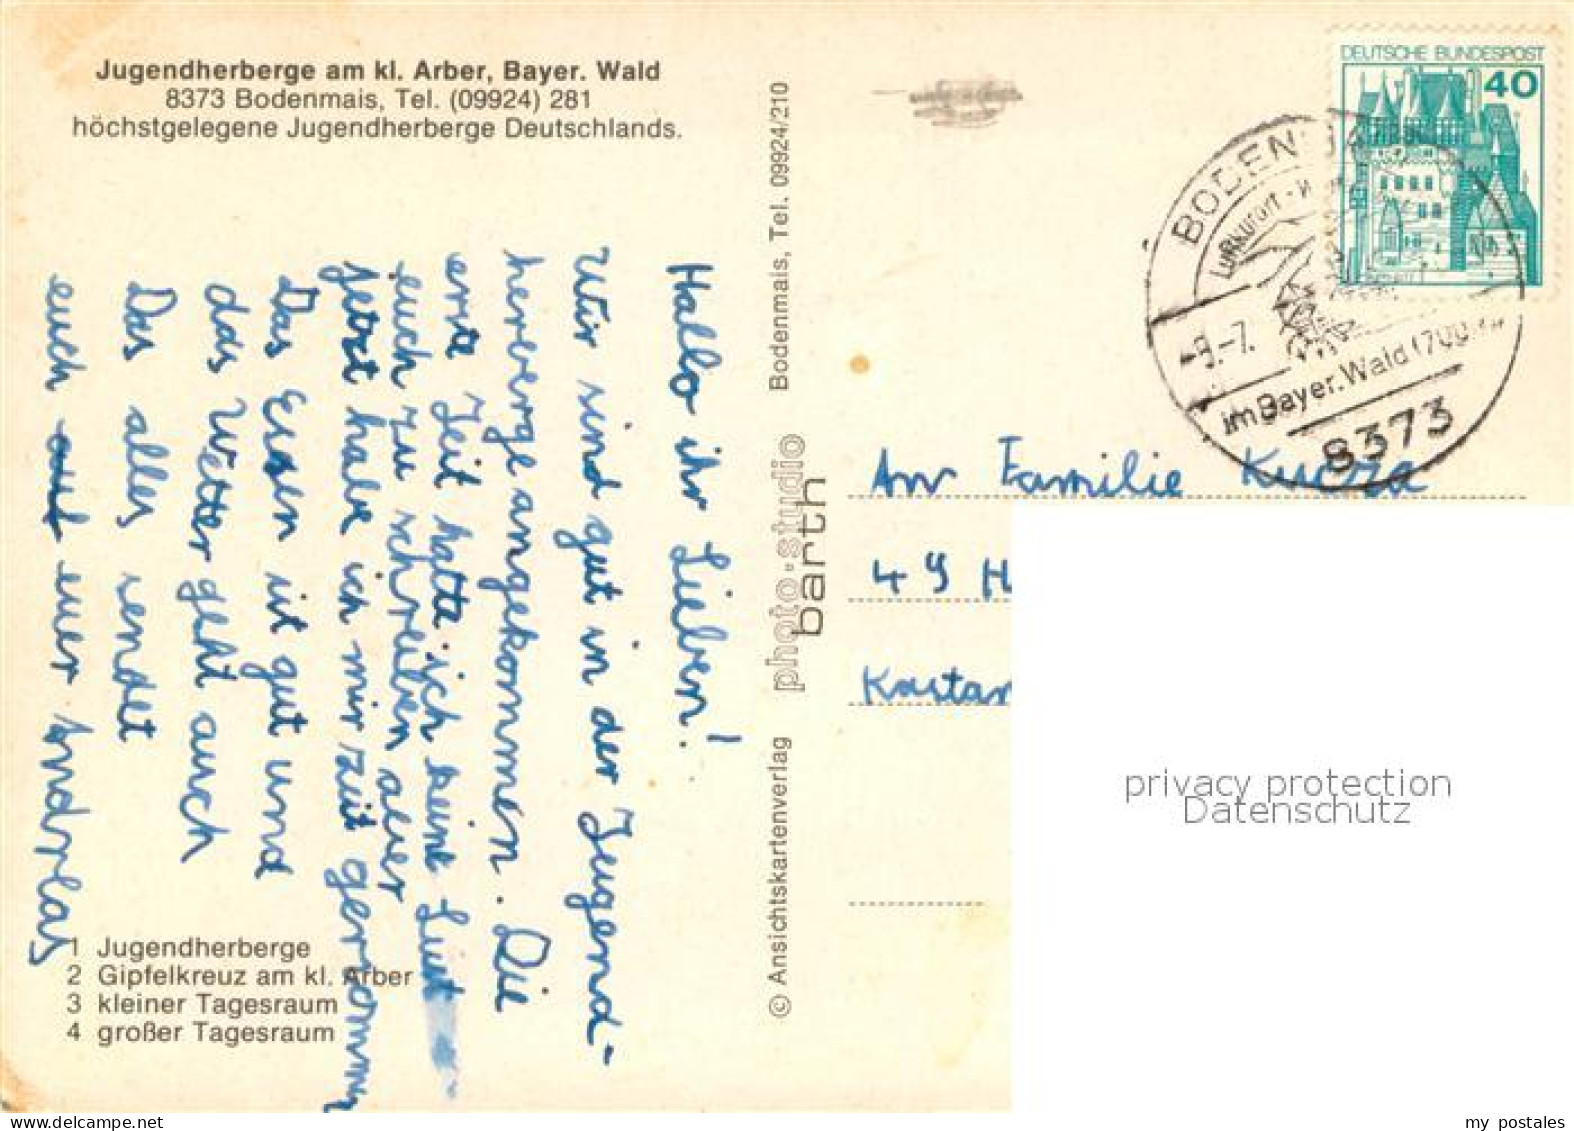 Jugendherberge am kl. Arber, Bayer. Wald
8373 Bodenmais, Tel. (09924) 281
höchstgelegene Jugendherberge Deutschlands.
Hallo ihr Lieben!
Wir sind gut in der Jugend-
herberge angekommen. Die
erste Zeit hatte ich keine Lust
euch zu schreiben aber
jetzt habe ich mir zeit genommen
Das Essen ist gut und
das Wetter geht auch
Das alles sendet
euch euer Andreas
1 Jugendherberge
2 Gipfelkreuz am kl. Arber
3 kleiner Tagesraum
4 großer Tagesraum
© Ansichtskartenverlag photo-studio barth Bodenmais, Tel. 09924/210
DEUTSCHE BUNDESPOST
40
BODENMA
Luftkurort - W
-9.-7.
im Bayer. Wald (700 m
8373
An Familie Kucza
49 H
Kastan
privacy protection
Datenschutz
my postales